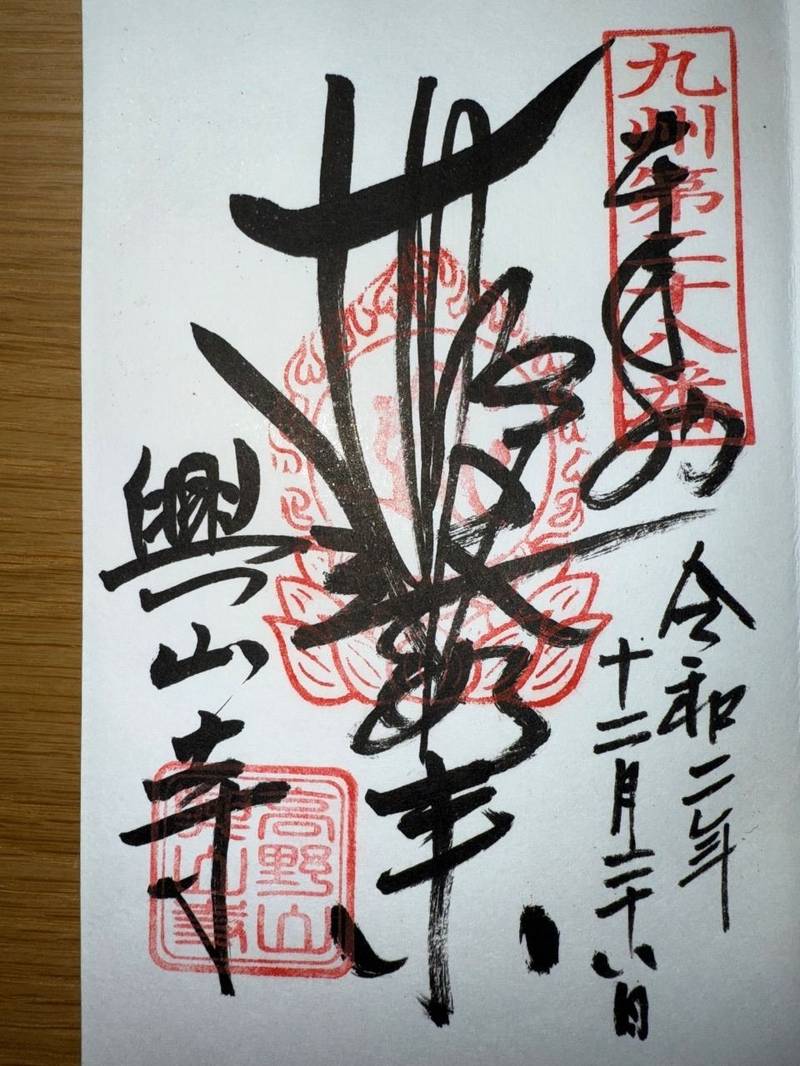 九州第二十八番
奉拝
令和二年
十二月二十八日
興山寺
高野山
興山寺